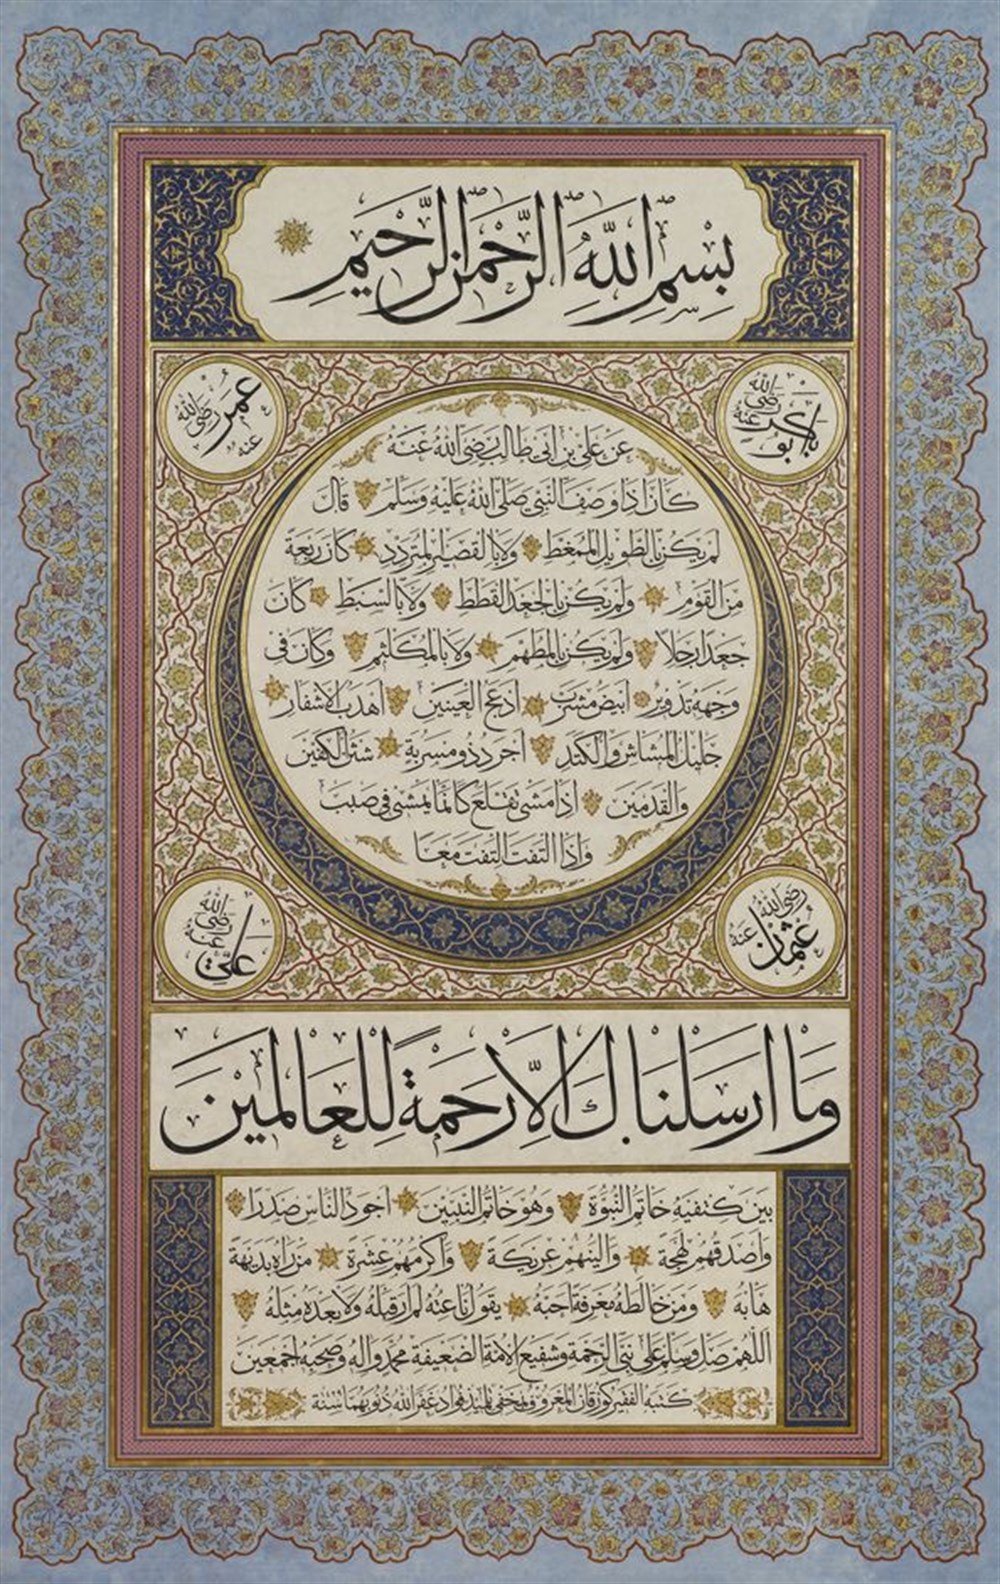 بِسْمِ اللهِ الرَّحْمٰنِ الرَّحِيمِ
ابو بكر رضى الله عنه
عمر رضى الله عنه
عن على بن ابى طالب رضى الله عنه
كان اذا وصف النبى صلى الله عليه وسلم قال
لم يكن بالطويل الممغط ولا بالقصير المتردد كان ربعة
من القوم ولم يكن بالجعد القطط ولا بالسبط كان
جعدا رجلا ولم يكن بالمطهم ولا بالمكلثم وكان فى
وجهه تدوير ابيض مشرب ادعج العينين اهدب الاشفار
جليل المشاش والكتد اجرد ذو مسربة شثن الكفين
والقدمين اذا مشى تقلع كانما يمشى فى صبب
واذا التفت التفت معا
عثمان رضى الله عنه
على رضى الله عنه
وما ارسلناك الا رحمة للعالمين
بين كتفيه خاتم النبوة وهو خاتم النبيين اجود الناس صدرا
واصدقهم لهجة والينهم عريكة واكرمهم عشرة من راه بديهة
هابه ومن خالطه معرفة احبه يقول ناعته لم ار قبله ولا بعده مثله
اللهم صل وسلم على نبى الرحمة وشفيع الامة الضعيفة محمد واله وصحبه اجمعين
كتبه الفقير المعروف غفر الله ذنوبهما سنة